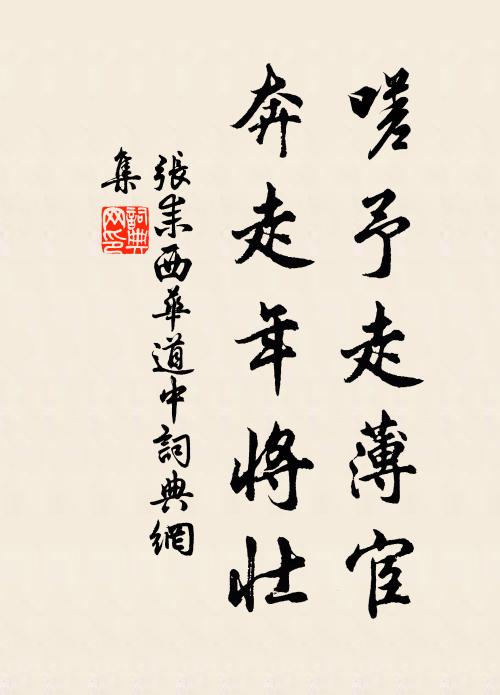 嗟予走薄宦
奔走年将壮
張耒西華道中詞典網
集
詞典
网印